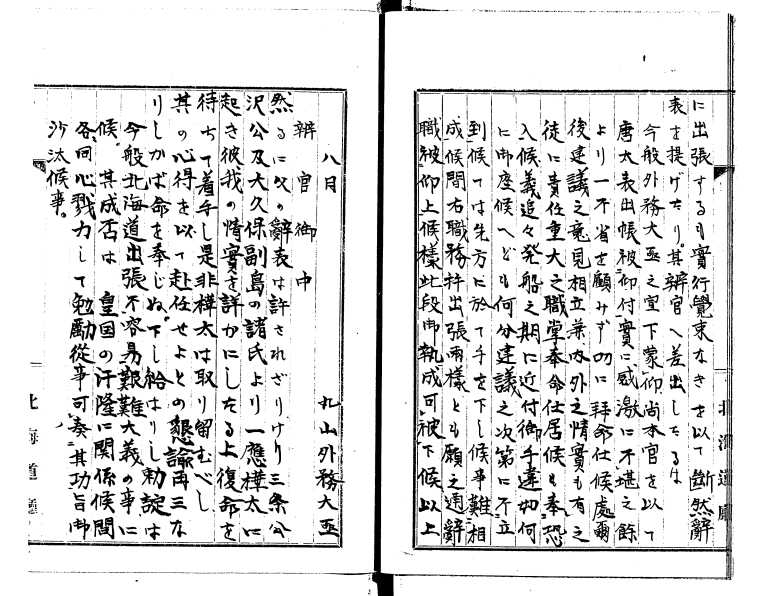 に出張するも實行覺束なきを以て斷然辭
表を提げたり。其辨官へ差出したるは
今般外務大丞之室下蒙仰尚本官を以て
唐太表出帳被仰付實に感激に不堪之餘
より一不省を顧みず切に拝命仕候處爾
後建議之意見相立兼内外之情實も有之
徒に責任重大之職掌奉命仕居候も奉恐
入候義追々発船之期に近付御手違如何
に御座候へども何分建議之次第に不立
到候ては先方に於て手を下し候事難相
成候間右職務并出張両樣とも願之通辭
職被仰上候樣此段御執成可被下候以上
八月 丸山外務大丞
辨官御中
然るに此の辭表は許されざりけり三条公
沢公及大久保副島の諸氏より一應樺太に
起き彼我の情實を詳かにしたる上復命を
待ちて着手し是非樺太は取り留むべし
其の心得を以て赴任せよとの懇諭再三な
りしかば命を奉じぬ、下し給はりし勅諚は
今般北海道出張不容易艱難大義の事に
候。其成否は 皇国の汙隆に関係候間
各同心戮力して勉勵從事可奏其功旨御
沙汰候事。
北海道廳
北海道廳